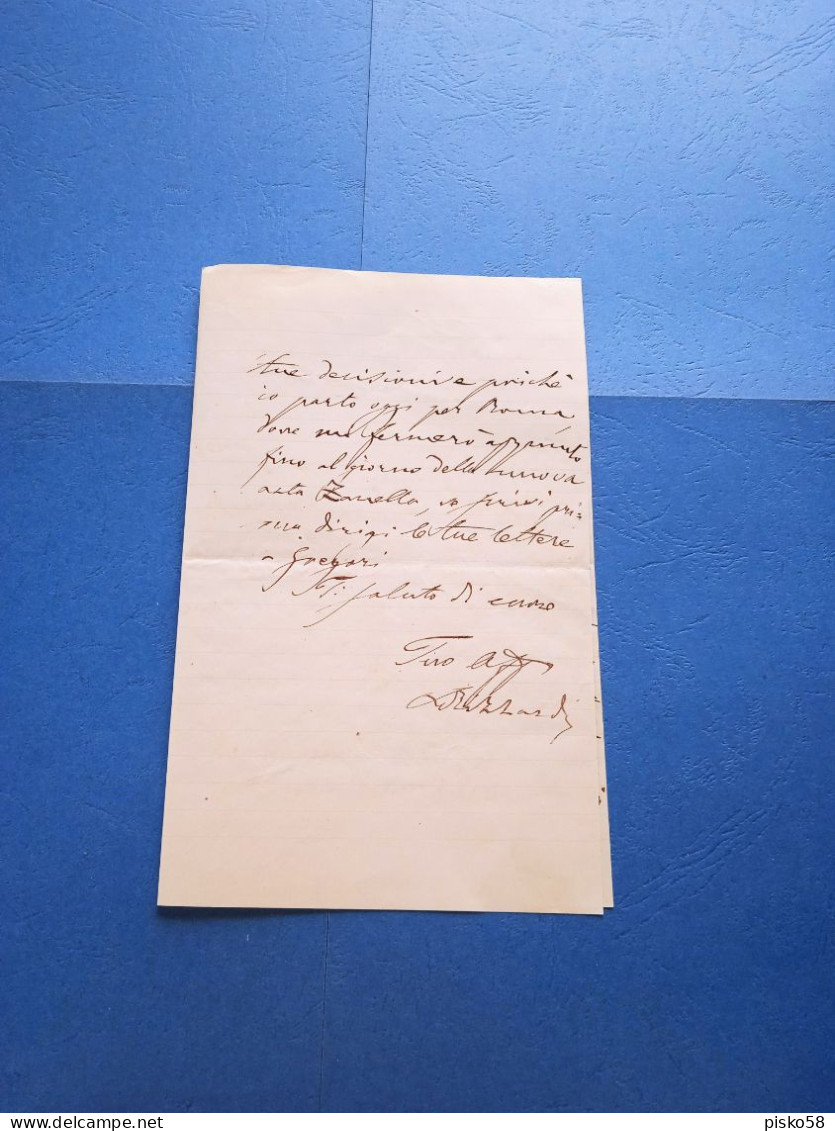 tue decisioni e poichè
io parto oggi per Roma
dove mi fermerò appunto
fino al giorno della nuova
Zanella, pri=
ma dirigi le tue lettere
a Gregori
Ti saluto di cuore
Tuo Aff
LRizzardi
pisko58